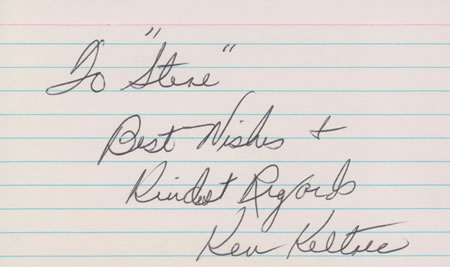 To "Steve"
Best Wishes +
Kindest Regards
Ken Keltner